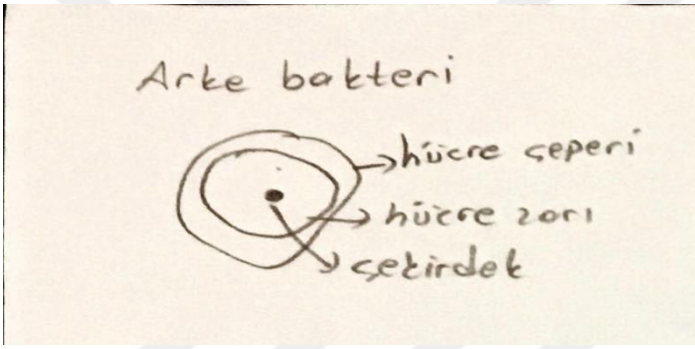 Arke bakteri
hücre çeperi
hücre zarı
çekirdek